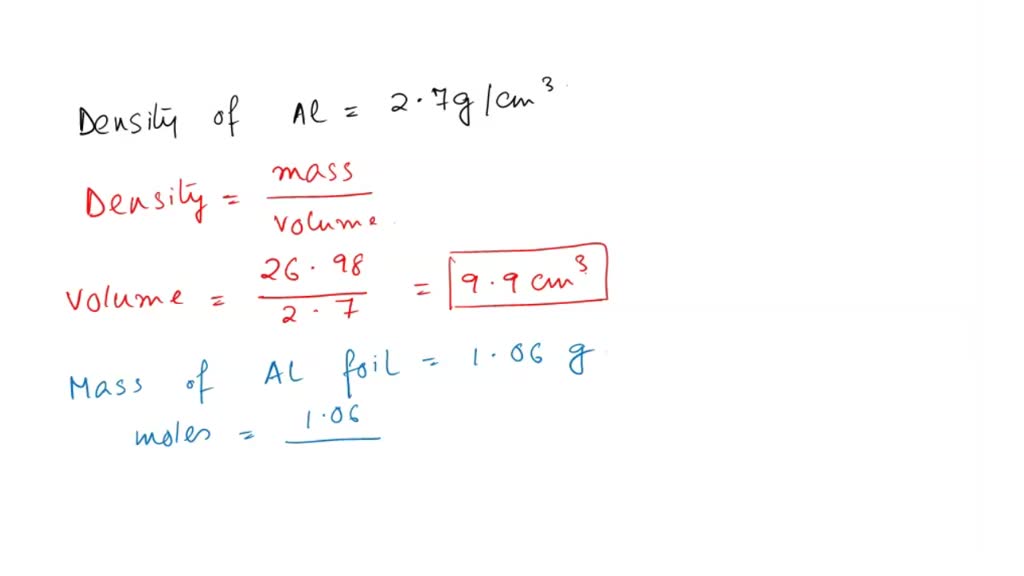 Density of Al = 2.7g/cm³
Density = mass / volume
Volume = 26.98 / 2.7 = 9.9 cm³
Mass of Al foil = 1.06 g
moles = 1.06